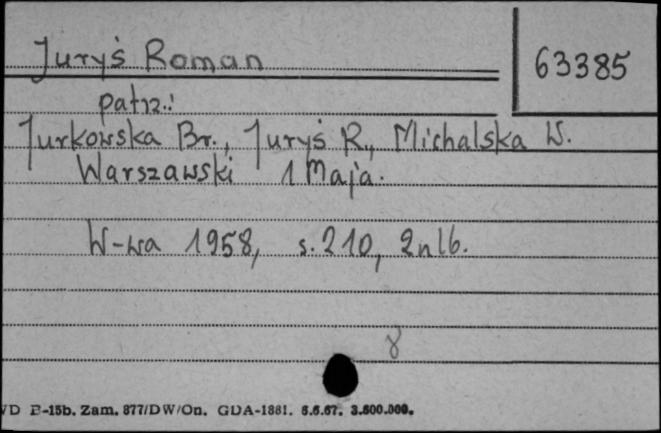 Juryś Roman
63385
patrz:
Jurkowska Br., Juryś R., Michalska W.
Warszawski 1 Maja.
W-wa 1958, s. 210, 2nlb.
8
D E-15b. Zam. 877/DW/On. GDA-1881. 6.6.67. 3.500.000.